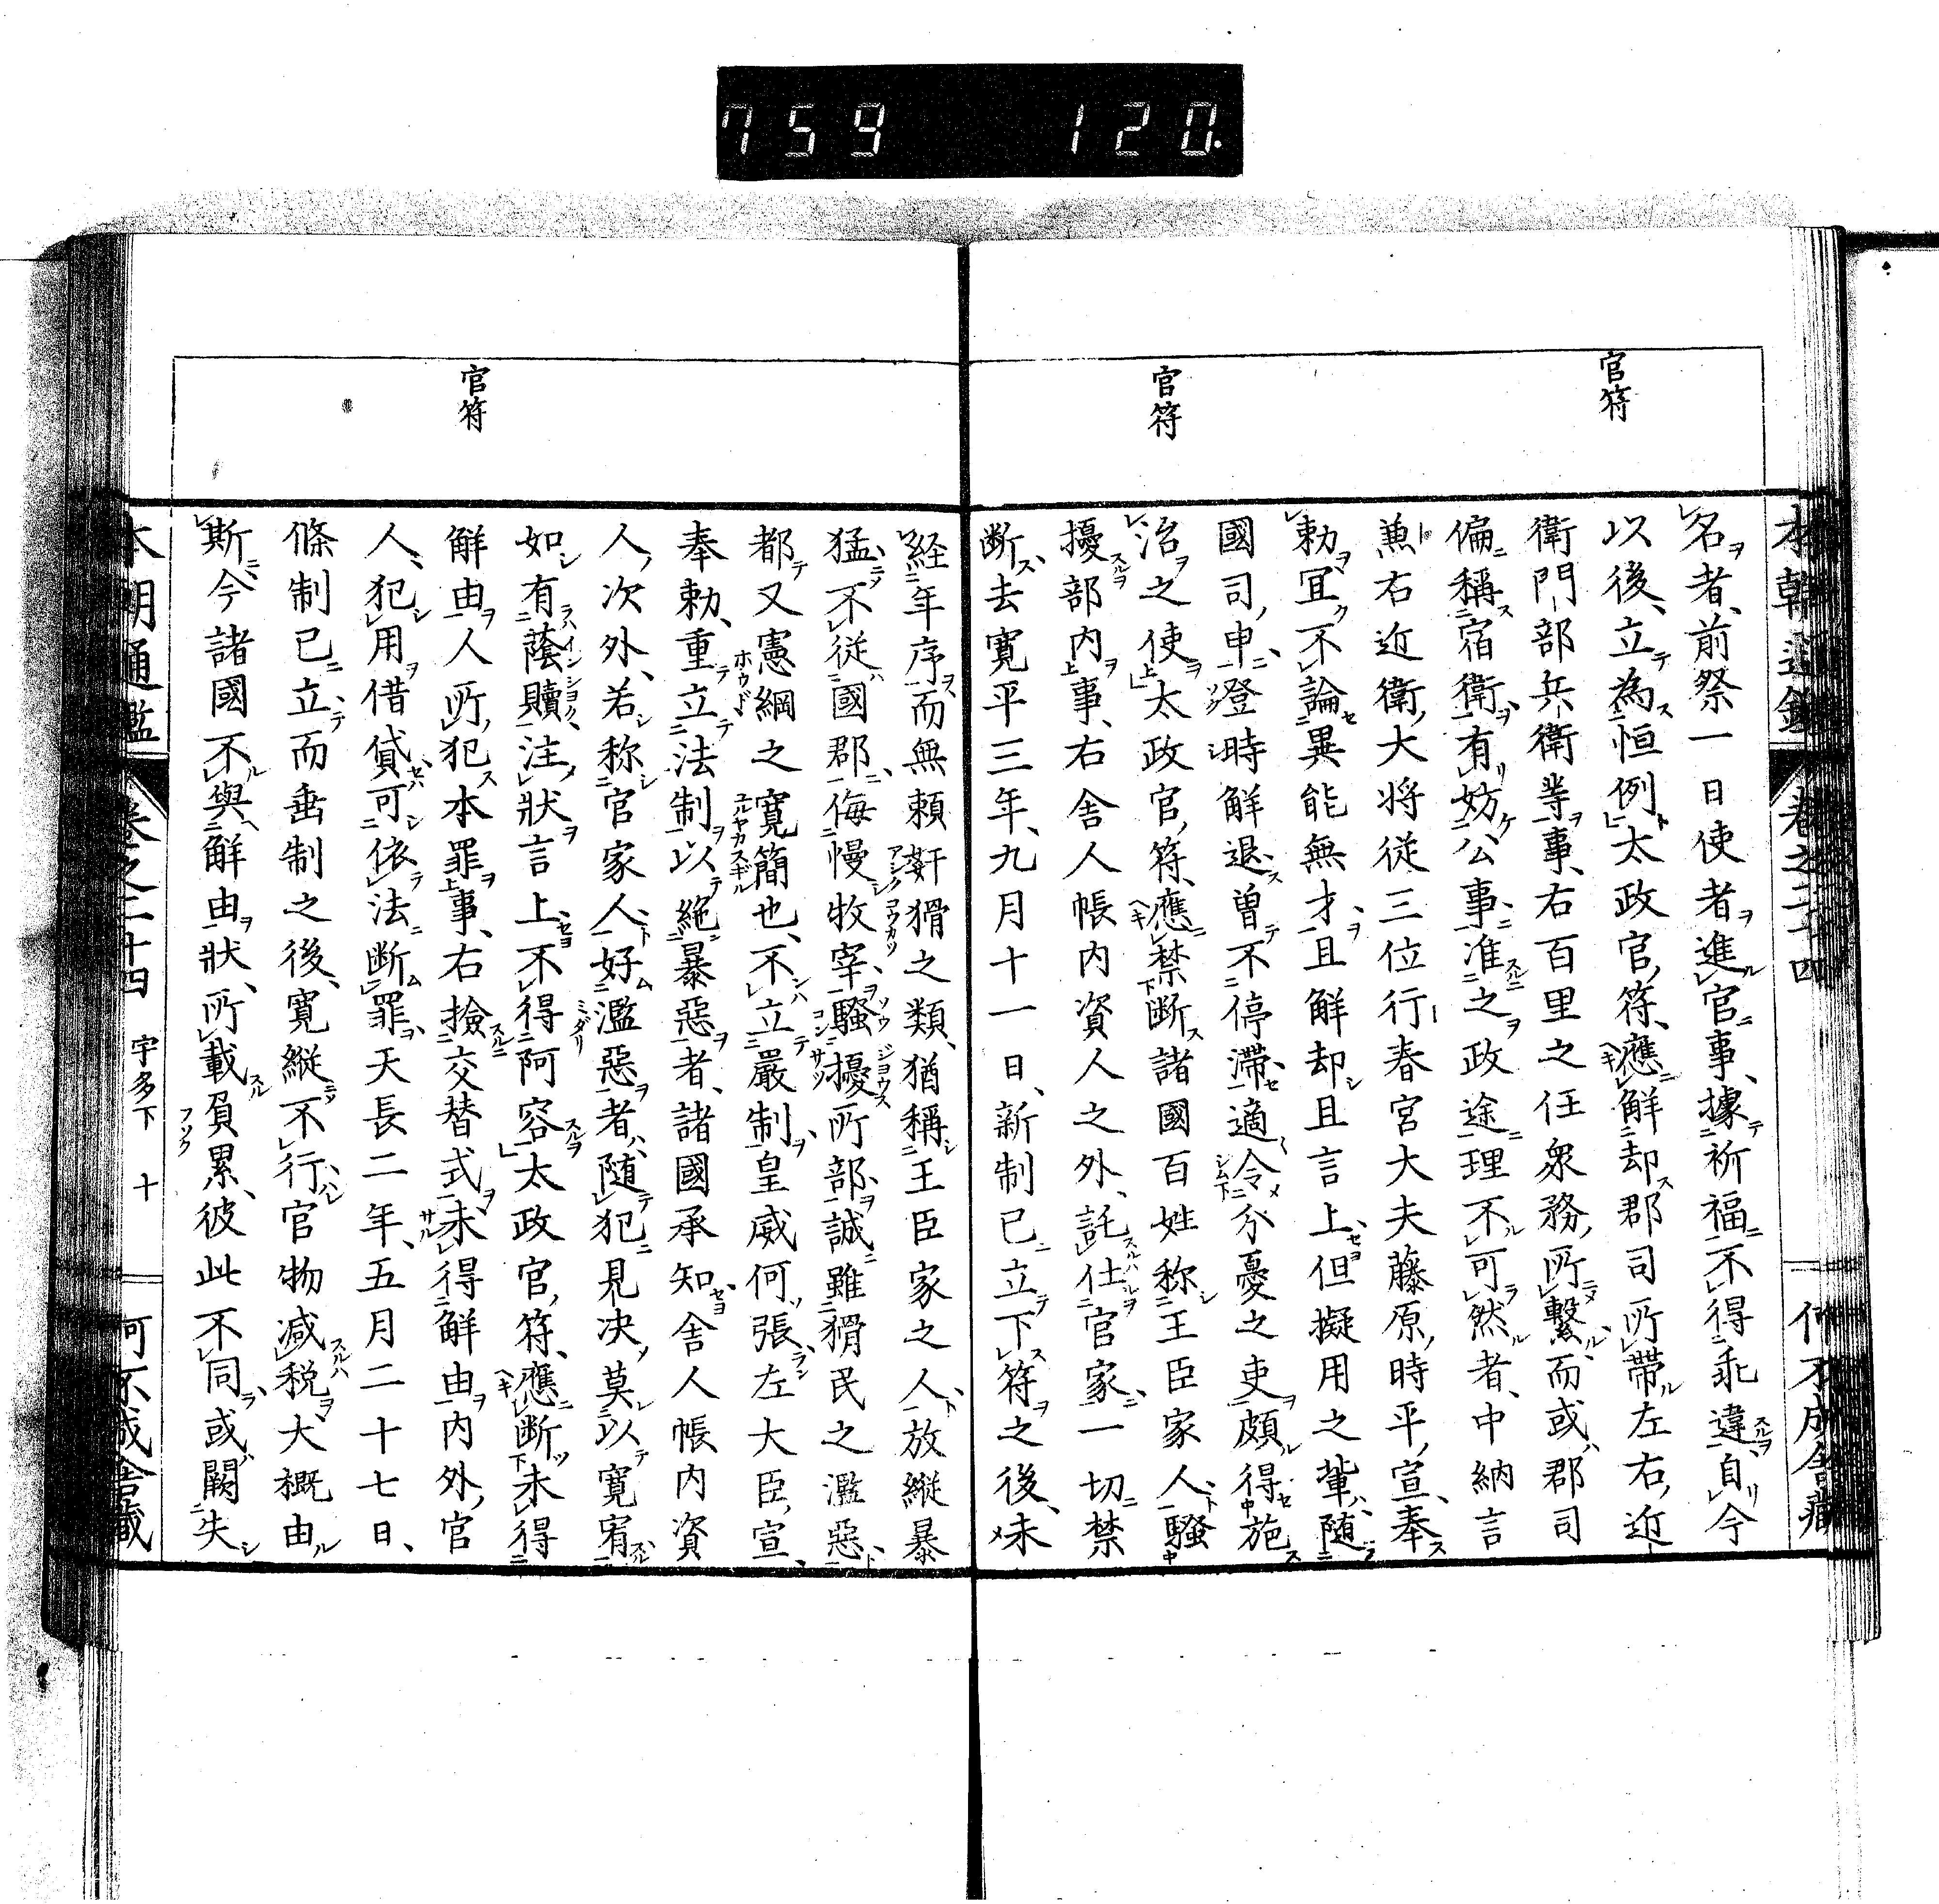 759 120.
官符
官符
名者、前祭一日使者進官事、據祈福不得乖違自今
以後、立為恒例太政官符、應解却郡司所帶左右近
衛門部兵衛等事、右百里之任衆務所繫而或郡司
偏稱宿衛有妨公事准之政途理不可然者、中納言
兼右近衛大将従三位行春宮大夫藤原時平宣、奉
勅宜不論異能無才且解却且言上但擬用之輩随
國司申登時解退曽不停滯適令分憂之吏頗得施
治之使太政官符、應禁断諸國百姓称王臣家人騒
擾部内事、右舎人帳内資人之外、託仕官家一切禁
断去寛平三年、九月十一日、新制已立下符之後、未
経年序而無頼奸猾之類、猶稱王臣家之人放縦暴
猛不従國郡侮慢牧宰騒擾所部誠雖猾民之濫惡
都又憲綱之寛簡也、不立嚴制皇威何張左大臣宣、
奉勅重立法制以絶暴惡者、諸國承知舎人帳内資
人次外、若称官家人好濫惡者随犯見决莫以寛宥
如有蔭贖注状言上不得阿容太政官符、應断未得
解由人所犯本罪事、右撿交替式未得解由内外官
人、犯用借貸可依法断罪天長二年、五月二十七日、
條制已立而垂制之後、寛縦不行官物减税大概由
斯今諸國不與解由状、所載負累、彼此不同或闕失
本朝通鑑 卷之二十四 宇多下 十